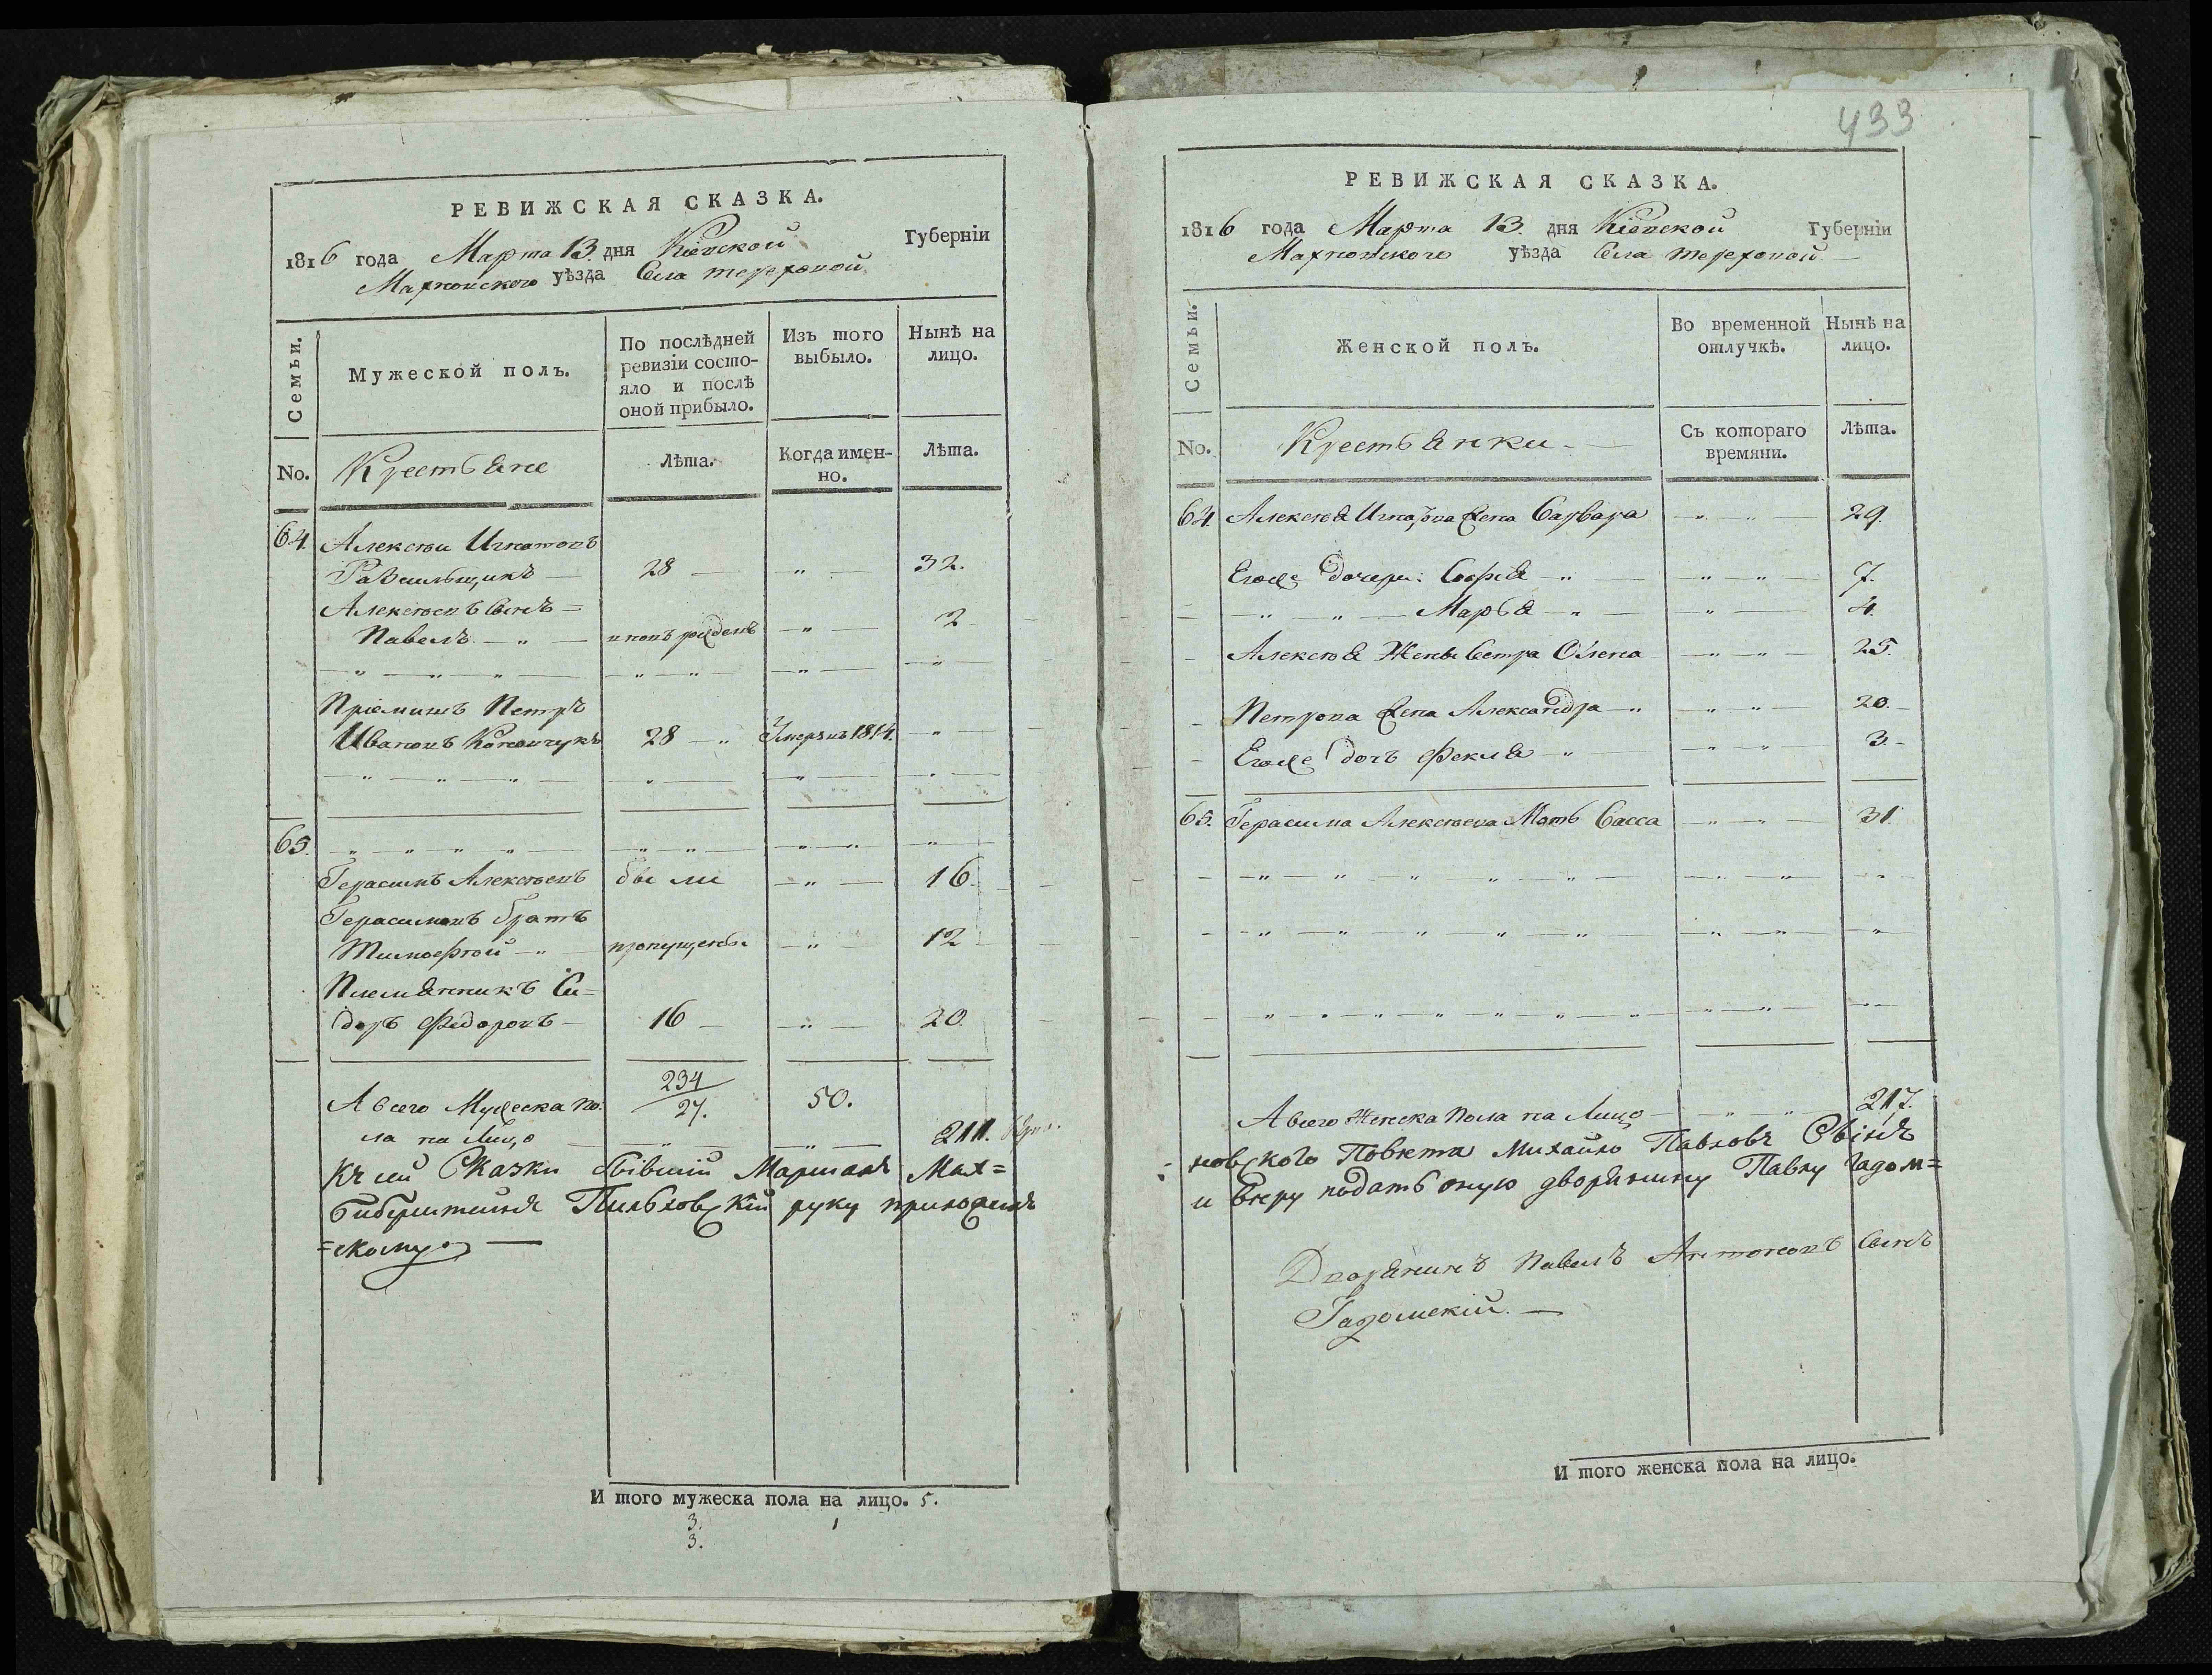 РЕВИЖСКАЯ СКАЗКА.
1816 года Марта 13. дня Кіевской Губерніи
Махновского уѣзда Села Тереховой
Семьи.
Мужеской полъ.
По послѣдней ревизіи состояло и послѣ оной прибыло.
Изъ того выбыло.
Нынѣ на лицо.
No.
Крестьяне
Лѣта.
Когда именно.
Лѣта.
64. Алексѣй Игнатовъ
28 — „ — 32.
Алексѣевъ Сынъ =
Павелъ — „ — новъ рожденъ — „ — 2
Пріемышъ Петръ
Ивановъ 28 — „ Умеръ в 1814. „
65.
Герасимъ Алексѣевъ бы ли — „ — 16
Герасимовъ братъ
Тимофѣй — „ — пропущены — „ — 12
Племянникъ Си=
доръ Федоровъ — 16 — „ — 20.
234
А всего Мужеска по: 27. 50.
ла на Лицо — „ — „ — 211.
Къ сей Сказки Бывшій Маршалъ Мах=
руку приложилъ
=скому.
И того мужеска пола на лицо. 5.
3. 1
3.
433
РЕВИЖСКАЯ СКАЗКА.
1816 года Марта 13. дня Кіевской Губерніи
Махновского уѣзда Села Тереховой —
Семьи.
Женской полъ.
Во временной отлучкѣ.
Нынѣ на лицо.
No.
Крестьянки —
Съ котораго времяни.
Лѣта.
64. Алексѣя Игнатова жена Варвара — „ — „ — 29.
Егоже дочери: Софія — „ — „ — „ — 7.
„ — „ — Марья — „ — „ — 4.
Алексѣя Жены Сестра Олена — „ — „ — 25.
Петрова жена Александра — „ — „ — „ — 20. —
Егоже дочь Фекла — „ — „ — „ — 3. —
65. Герасима Алексѣева Мать Васса — „ — „ — 31
А всего Женска Пола на Лицо — „ — „ 217.
новского Повѣта Михайло Павловъ Сынъ
и Вѣеру подать оную дворянину Павлу Гадом=
Дворянинъ Павелъ Антоновъ Сынъ
Гадомскій. —
И того женска пола на лицо.